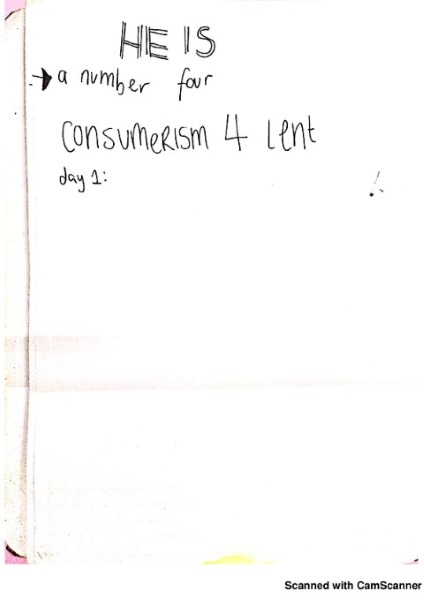 HE IS
→ a number four
CONSUMERISM 4 lent
day 1:
Scanned with CamScanner